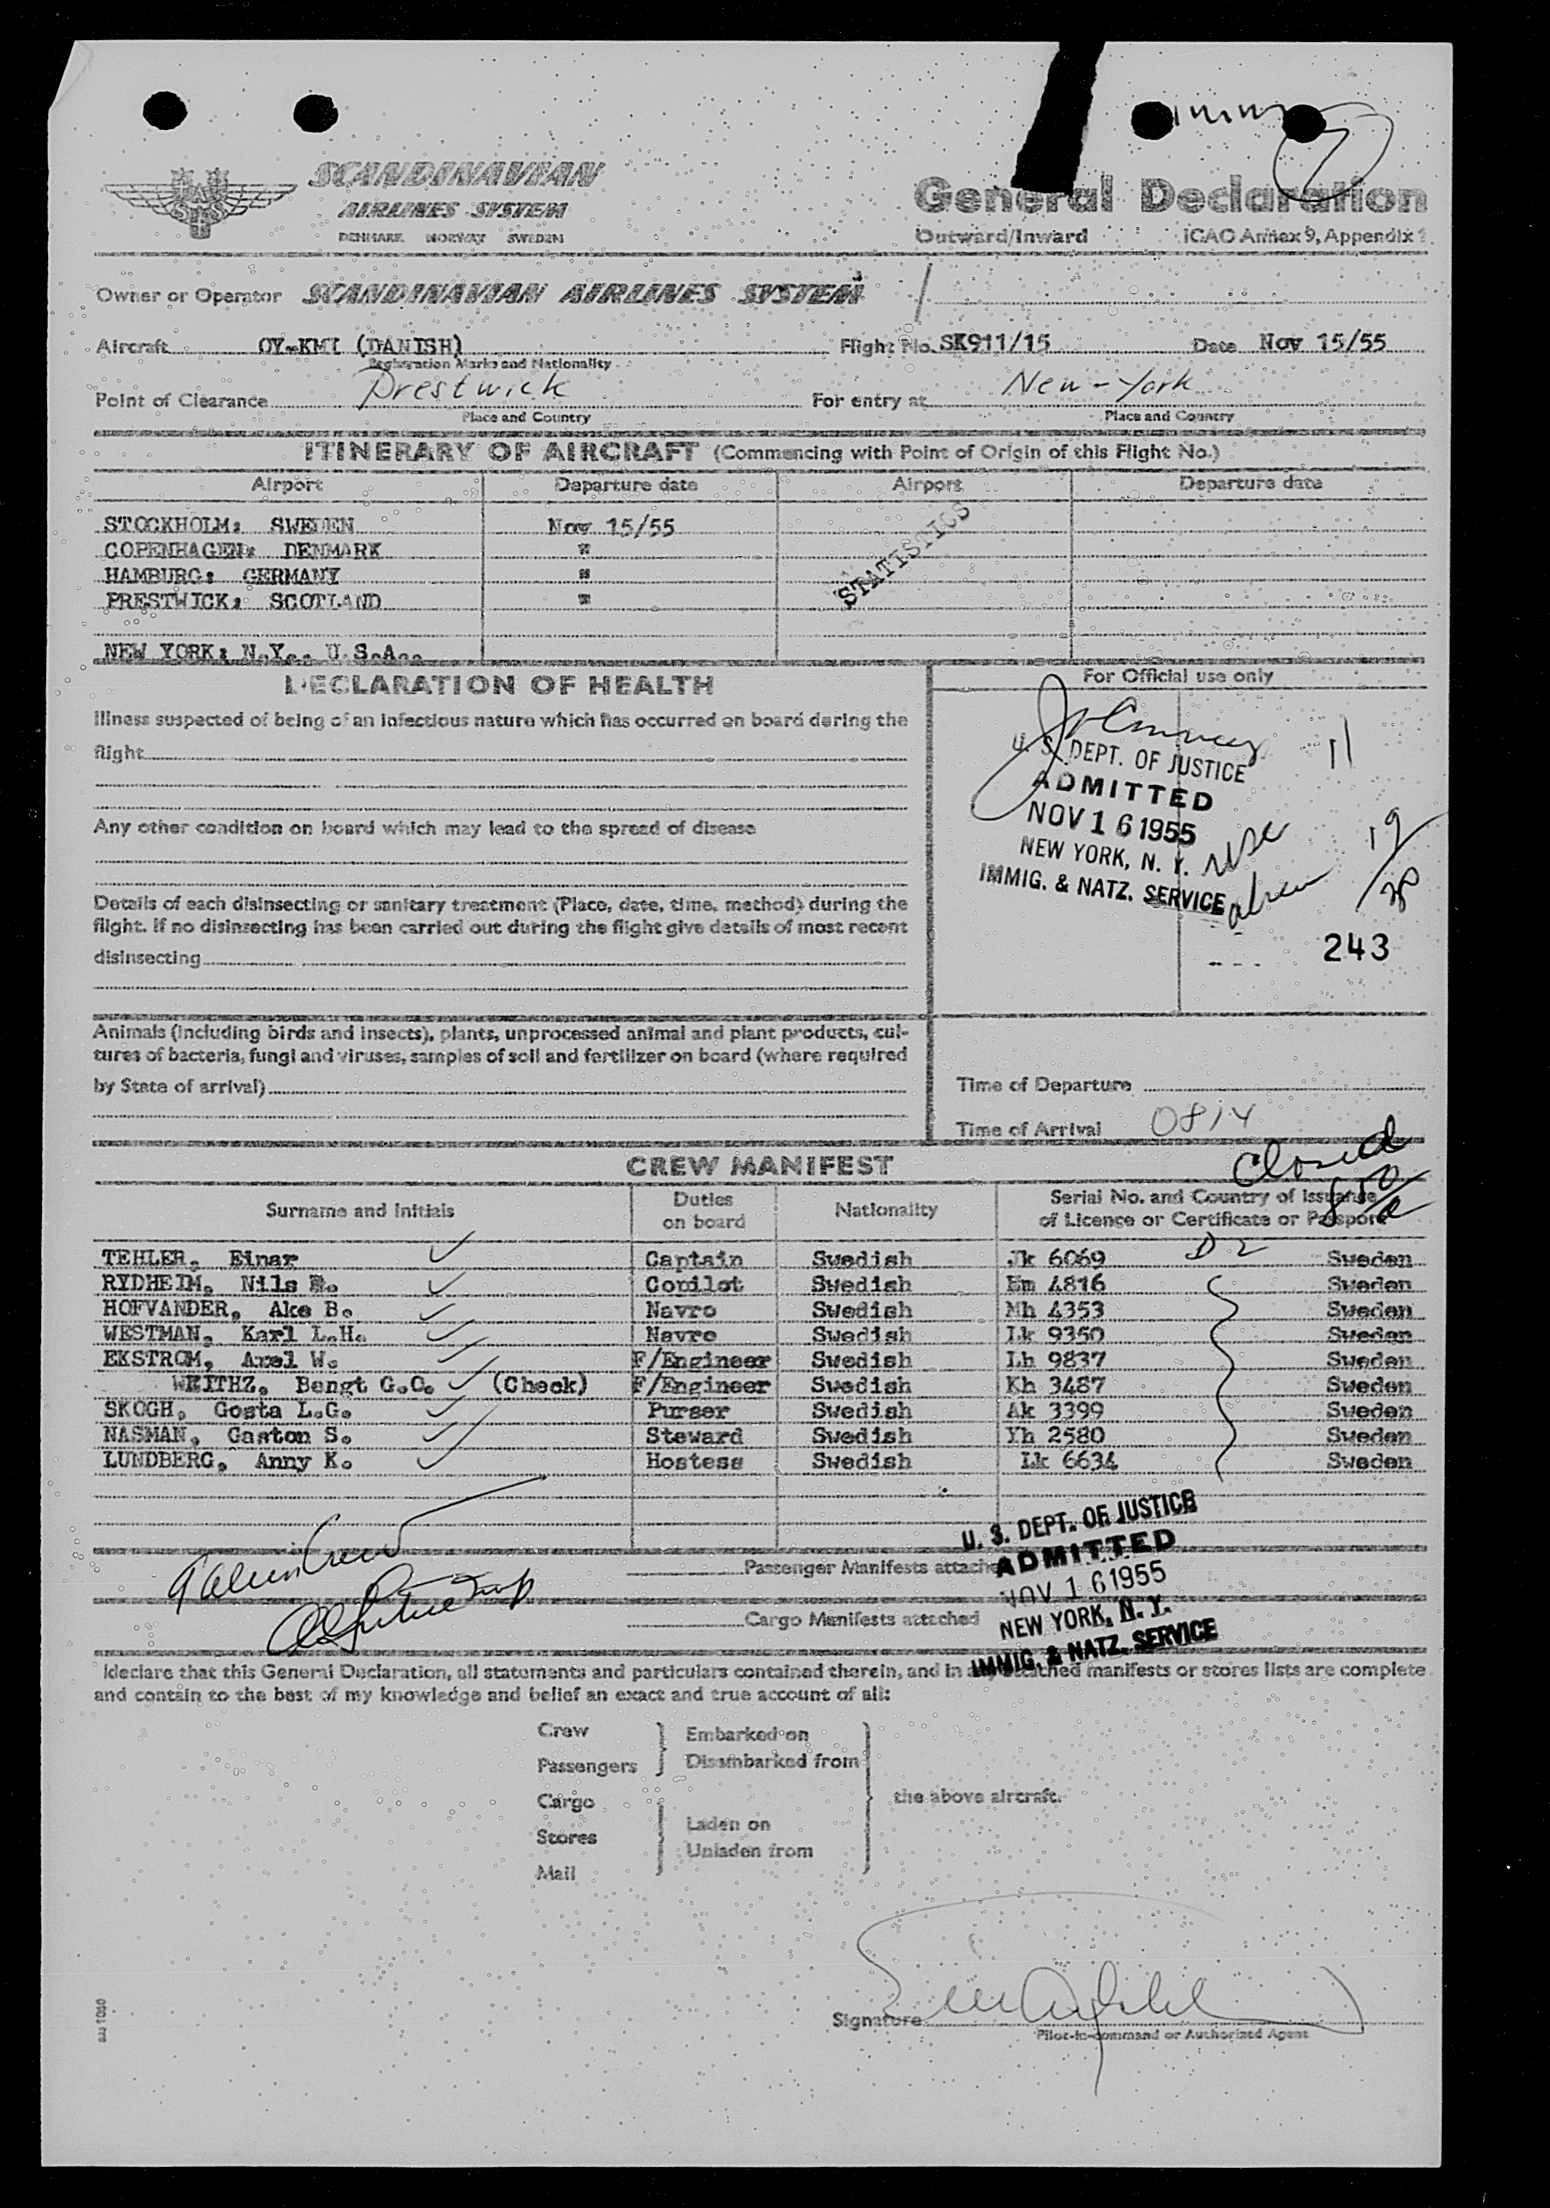 SCANDINAVIAN
AIRLINES SYSTEM
DENMARK NORWAY SWEDEN
General Declaration
Outward/Inward ICAO Annex 9, Appendix 1
Owner or Operator SCANDINAVIAN AIRLINES SYSTEM
Aircraft OY-KMI (DANISH) Flight No. SK911/15 Date Nov 15/55
Registration Marks and Nationality
Point of Clearance Prestwick For entry at New-York
Place and Country Place and Country
ITINERARY OF AIRCRAFT (Commencing with Point of Origin of this Flight No.)
Airport Departure date Airport Departure date
STOCKHOLM: SWEDEN Nov 15/55
COPENHAGEN: DENMARK "
HAMBURG: GERMANY "
PRESTWICK: SCOTLAND "
STATISTICS
NEW YORK: N.Y.. U.S.A..
DECLARATION OF HEALTH
For Official use only
Illness suspected of being of an infectious nature which has occurred on board during the
flight
U. S. DEPT. OF JUSTICE
ADMITTED
NOV 16 1955
NEW YORK, N. Y.
IMMIG. & NATZ. SERVICE
11
19
243
Any other condition on board which may lead to the spread of disease
Details of each disinsecting or sanitary treatment (Place, date, time, method) during the
flight. If no disinsecting has been carried out during the flight give details of most recent
disinsecting
Animals (including birds and insects), plants, unprocessed animal and plant products, cul-
tures of bacteria, fungi and viruses, samples of soil and fertilizer on board (where required
by State of arrival)
Time of Departure
Time of Arrival 0814
Closed
CREW MANIFEST
Surname and Initials Duties on board Nationality Serial No. and Country of Issuance of Licence or Certificate or Passport
TEHLER, Einar Captain Swedish Jk 6069 D2 Sweden
RYDHEIM, Nils Copilot Swedish Em 4816 Sweden
HOFVANDER, Ake B. Navro Swedish Mh 4353 Sweden
WESTMAN, Karl L.H. Navro Swedish Lk 9350 Sweden
EKSTROM, Axel W. F/Engineer Swedish Lh 9837 Sweden
WEITHZ, Bengt G.O. (Check) F/Engineer Swedish Kh 3487 Sweden
SKOGH, Gosta L.G. Purser Swedish Ak 3399 Sweden
NASMAN, Gaston S. Steward Swedish Yh 2580 Sweden
LUNDBERG, Anny K. Hostess Swedish Lk 6634 Sweden
Passenger Manifests attached
Cargo Manifests attached
U. S. DEPT. OF JUSTICE
ADMITTED
NOV 16 1955
NEW YORK, N. Y.
IMMIG. & NATZ. SERVICE
I declare that this General Declaration, all statements and particulars contained therein, and in any attached manifests or stores lists are complete
and contain to the best of my knowledge and belief an exact and true account of all:
Crew
Passengers
Embarked on
Disembarked from
Cargo
Stores
Mail
Laden on
Unladen from
the above aircraft.
Signature
Pilot-in-command or Authorized Agent